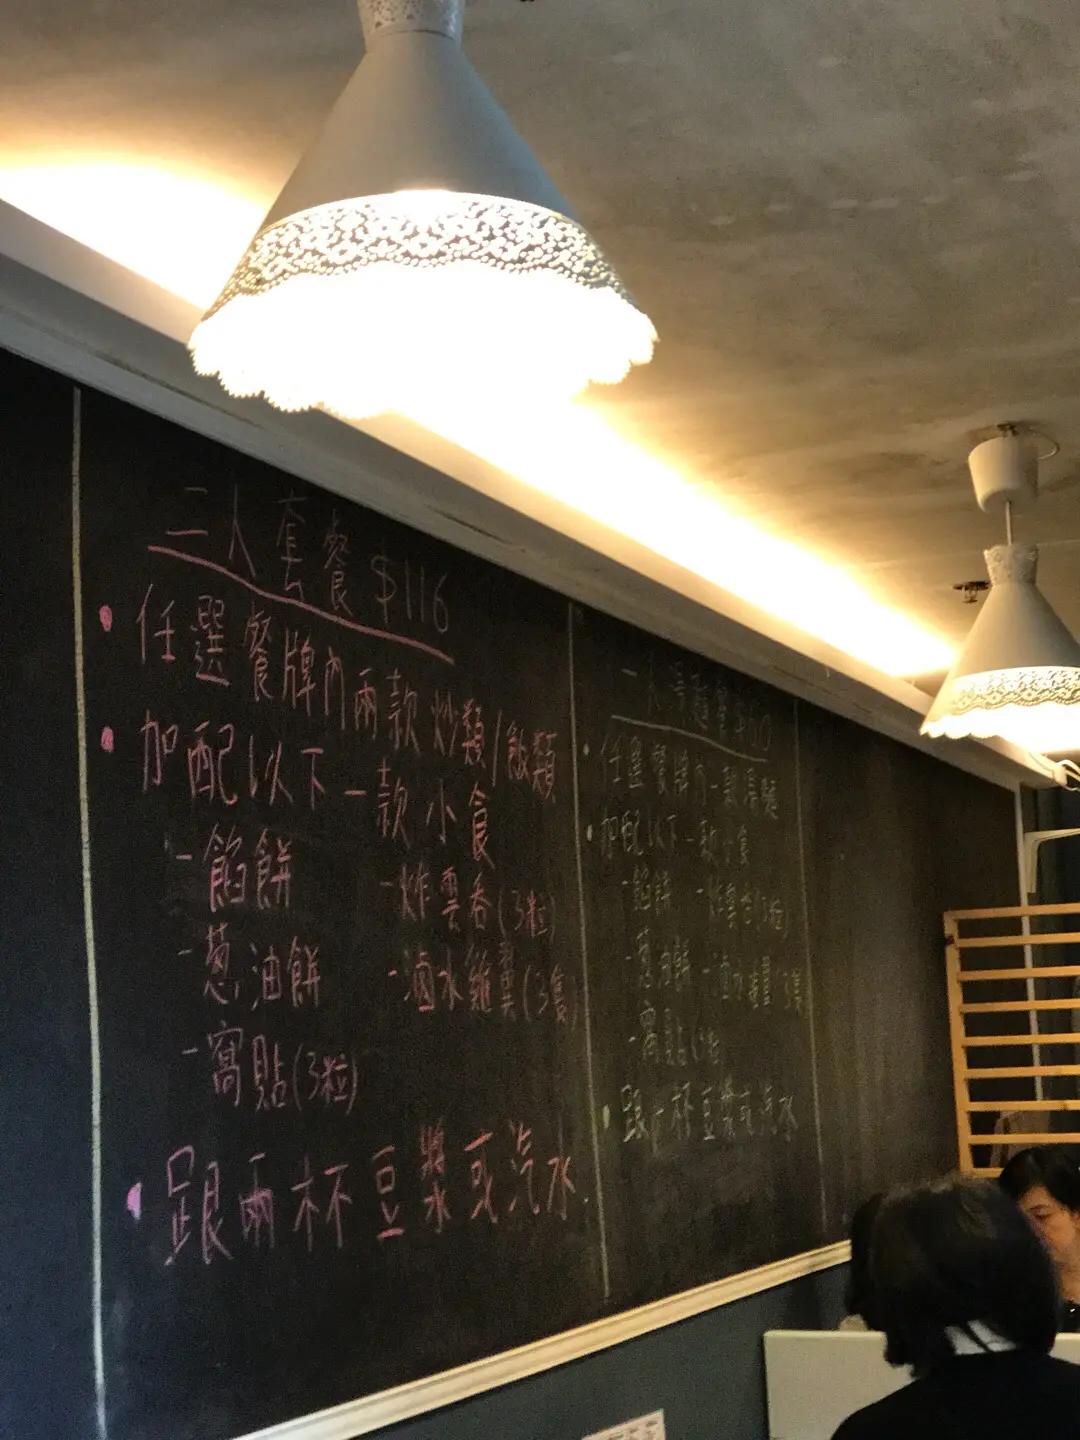 二人套餐 $116
• 任選餐牌內兩款炒類/飯類
• 加配以下一款小食
- 餡餅
- 炸雲吞(3粒)
- 葱油餅
- 滷水雞翼(3隻)
- 窩貼(3粒)
• 跟兩杯豆漿或汽水
一人湯麵餐
• 任選餐牌內一款湯麵
• 加配以下一款小食
- 餡餅
- 炸雲吞(3粒)
- 葱油餅
- 滷水雞翼(3隻)
- 窩貼
• 跟一杯豆漿或汽水